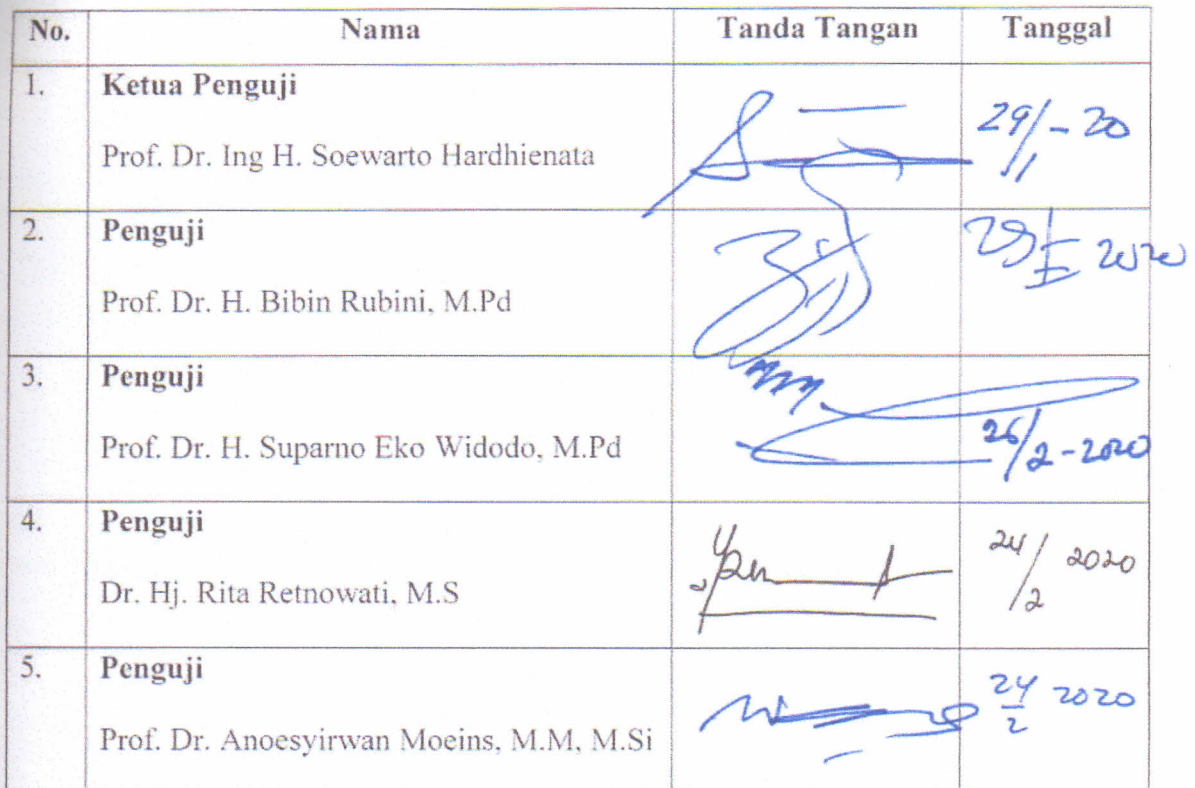 No. Nama Tanda Tangan Tanggal
1. Ketua Penguji
Prof. Dr. Ing H. Soewarto Hardhienata
29/11 - 20
2. Penguji
Prof. Dr. H. Bibin Rubini, M.Pd
2020
3. Penguji
Prof. Dr. H. Suparno Eko Widodo, M.Pd
26/2 - 2020
4. Penguji
Dr. Hj. Rita Retnowati, M.S
24/2 2020
5. Penguji
Prof. Dr. Anoesyirwan Moeins, M.M, M.Si
24/2 2020